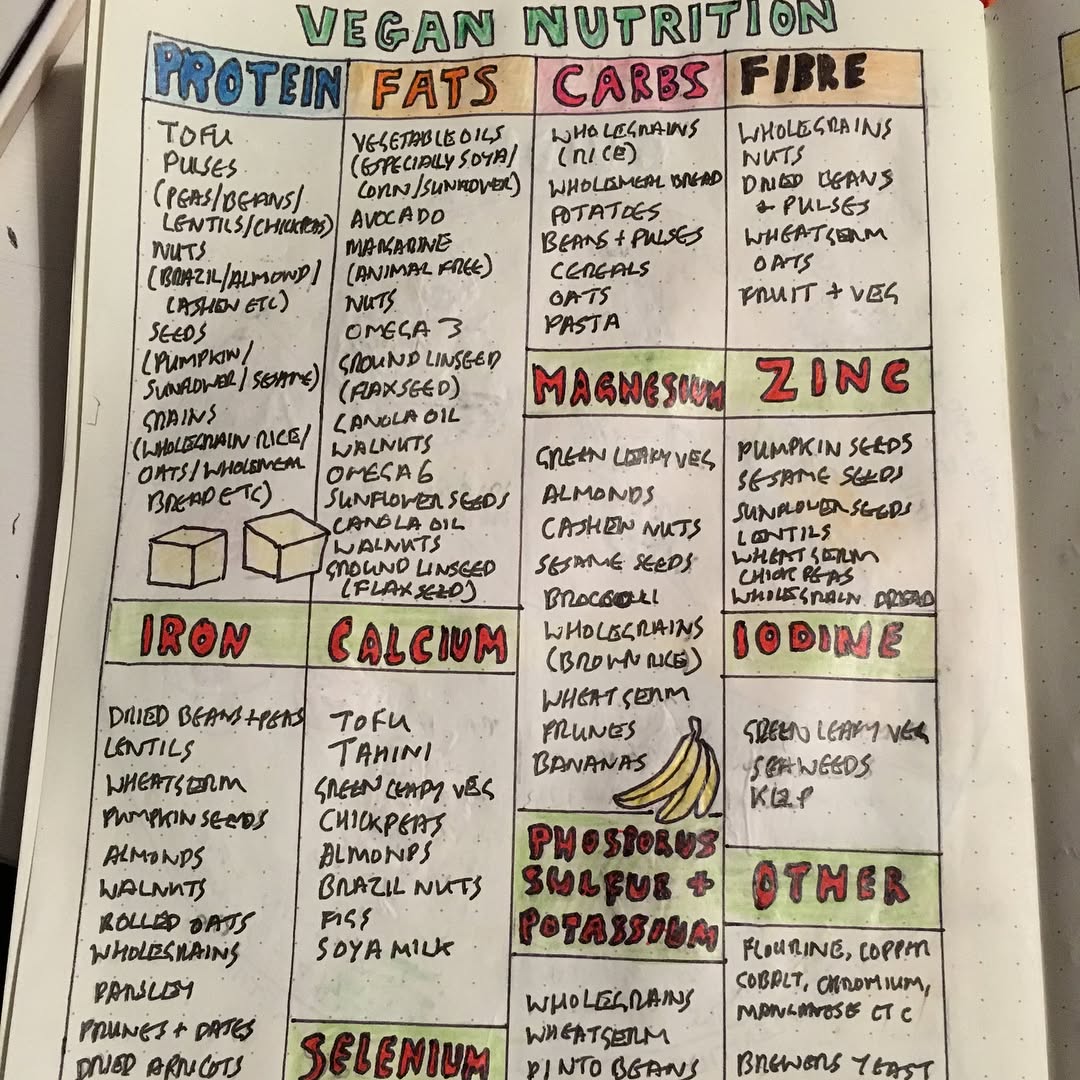 VEGAN NUTRITION
PROTEIN
TOFU
PULSES
(PEAS/BEANS/
LENTILS/CHICKPEAS)
NUTS
(BRAZIL/ALMOND/
CASHEW ETC)
SEEDS
(PUMPKIN/
SUNFLOWER/SESAME)
GRAINS
(WHOLEGRAIN RICE/
OATS/WHOLEMEAL
BREAD ETC)
FATS
VEGETABLE OILS
(ESPECIALLY SOYA/
CORN/SUNFLOWER)
AVOCADO
MARGARINE
(ANIMAL FREE)
NUTS
OMEGA 3
GROUND LINSEED
(FLAXSEED)
CANOLA OIL
WALNUTS
OMEGA 6
SUNFLOWER SEEDS
CANOLA OIL
WALNUTS
GROUND LINSEED
(FLAXSEED)
CARBS
WHOLEGRAINS
(RICE)
WHOLEMEAL BREAD
POTATOES
BEANS + PULSES
CEREALS
OATS
PASTA
FIBRE
WHOLEGRAINS
NUTS
DRIED BEANS
+ PULSES
WHEATGERM
OATS
FRUIT + VEG
MAGNESIUM
GREEN LEAFY VEG
ALMONDS
CASHEW NUTS
SESAME SEEDS
BROCCOLI
WHOLEGRAINS
(BROWN RICE)
WHEATGERM
PRUNES
BANANAS
ZINC
PUMPKIN SEEDS
SESAME SEEDS
SUNFLOWER SEEDS
LENTILS
WHEATGERM
CHICKPEAS
WHOLEGRAIN BREAD
IRON
DRIED BEANS + PEAS
LENTILS
WHEATGERM
PUMPKIN SEEDS
ALMONDS
WALNUTS
ROLLED OATS
WHOLEGRAINS
PARSLEY
PRUNES + DATES
DRIED APRICOTS
CALCIUM
TOFU
TAHINI
GREEN LEAFY VEG
CHICKPEAS
ALMONDS
BRAZIL NUTS
FIGS
SOYA MILK
SELENIUM
IODINE
GREEN LEAFY VEG
SEAWEEDS
KELP
PHOSPORUS
SULFUR +
POTASSIUM
WHOLEGRAINS
WHEATGERM
PINTO BEANS
OTHER
FLOURINE, COPPER
COBALT, CHROMIUM,
MANGANESE ETC
BREWERS YEAST